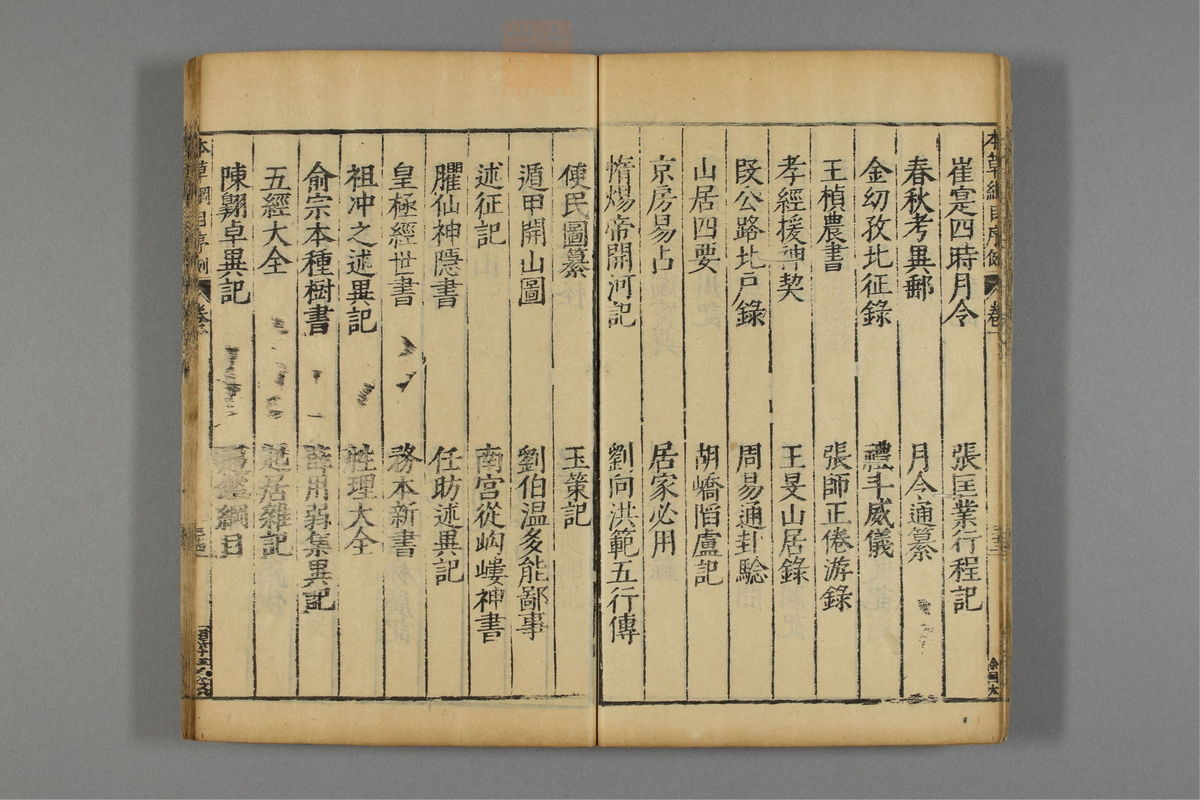 崔寔四時月令 張匡業行程記
春秋考異郵 月令通纂
金幼孜北征錄 禮斗威儀
王楨農書 張師正倦游錄
孝經援神契 王旻山居錄
段公路北戶錄 周易通卦驗
山居四要 胡嶠陷盧記
京房易占 居家必用
惰煬帝開河記 劉向洪範五行傳
便民圖纂 玉策記
遁甲開山圖 劉伯溫多能鄙事
述征記 南宮從岣嶁神書
臞仙神隱書 任昉述異記
皇極經世書 務本新書
祖冲之述異記 性理大全
俞宗本種樹書 薛用弱集異記
五經大全 居雜記
陳翺卓異記 綱目
本草綱目序例 卷